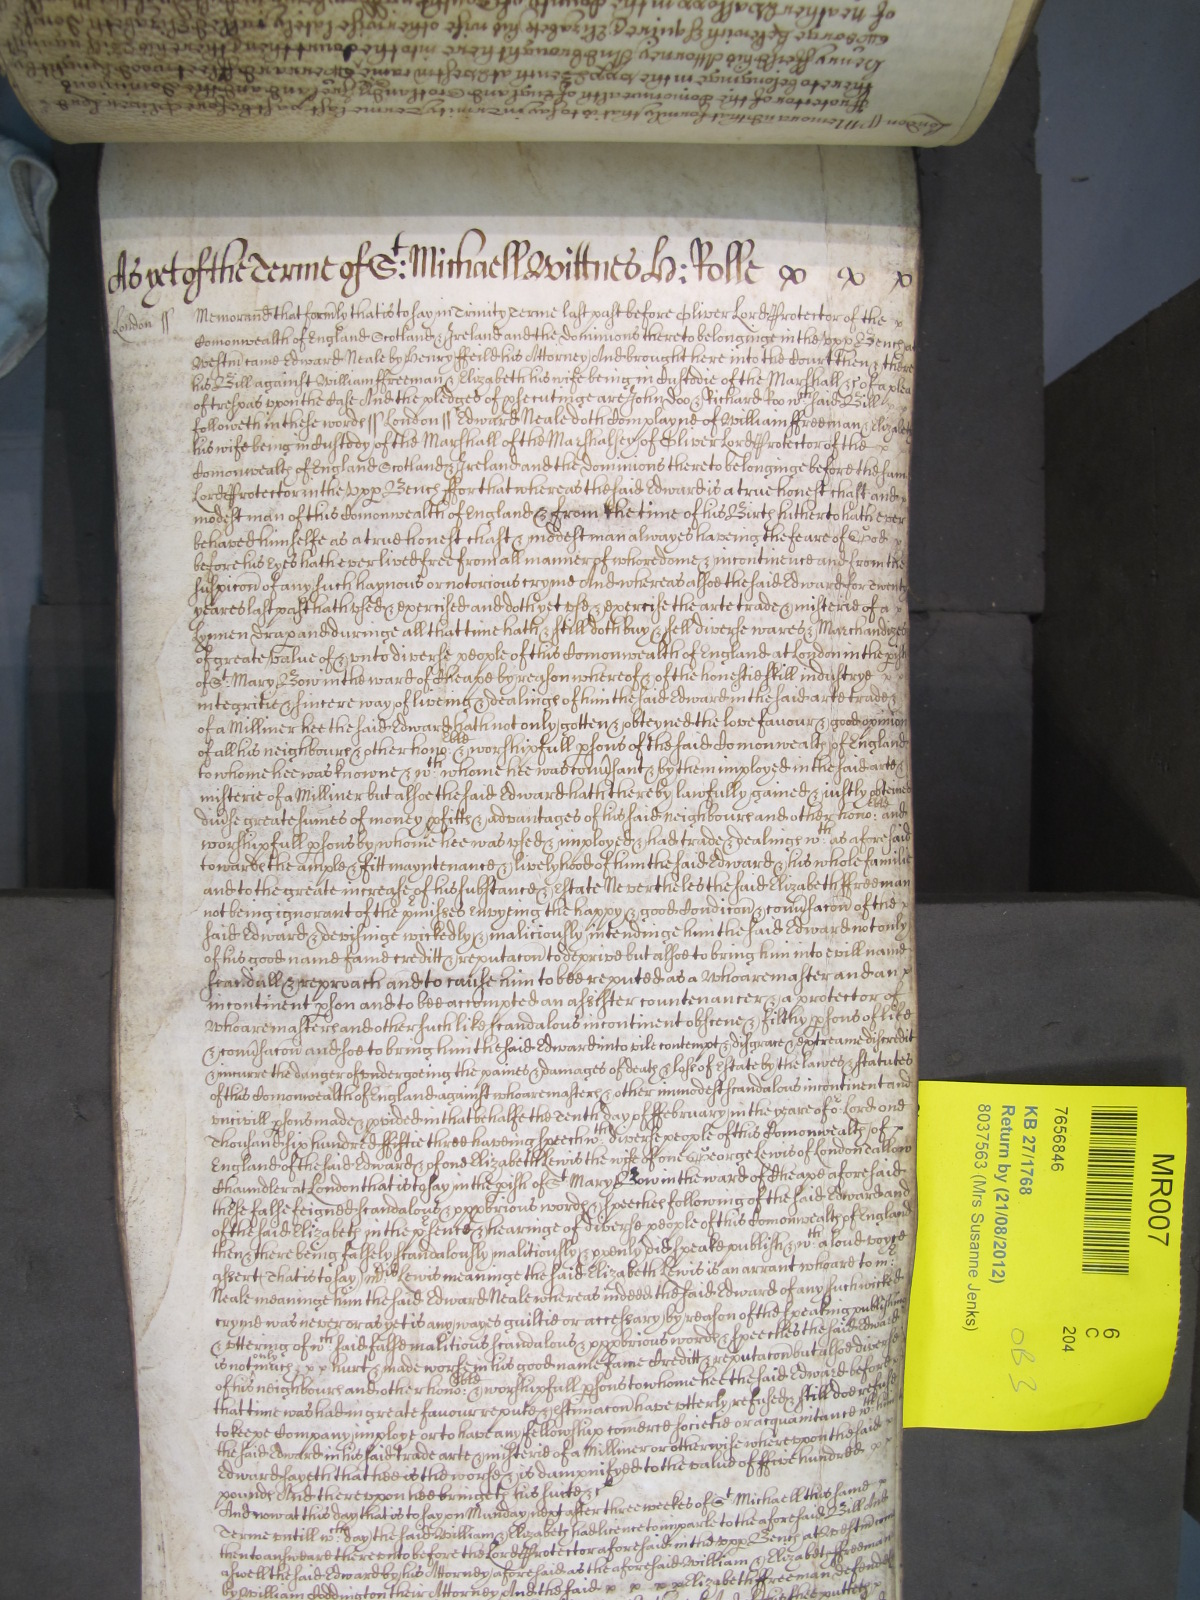 As yet of the Terme of St: Michaell Wittnes H: Rolle
London ss Memorand that formly that is to say in Trinity Terme last past before Oliver Lord Protector of the
Comonwealth of England Scotland & Ireland and the Dominions thereto belonginge in the Upp Bench at
Westm came Edward Neale by Henry ffeild his Attorney And brought here into the Court then & there
his Bill against William ffreeman & Elizabeth his wife being in Custodie of the Marshall &c of a plea
of trespas upon the Case And the pledges of psecutinge are John Doo & Richard Roo wch said Bill
followeth in these words ss London ss Edward Neale doth Complayne of William ffreeman & Elizabeth
his wife being in Custody of the Marshall of the Marshalsey of Oliver Lord Protector of the
Comonwealth of England Scotland & Ireland and the Dominions thereto belonginge before the same
Lord Protector in the Upp Bench ffor that whereas the said Edward is a true honest chast and
modest man of this Comonwealth of England & from the time of his Birth hitherto hath ever
behaved himselfe as a true honest chast & modest man alwayes haveing the feare of God
before his Eyes hath ever lived free from all manner of whoredome & incontinence and from the
suspicon of any such haynous or notorious cryme And whereas alsoe the said Edward for
yeares last past hath used & exercised and doth yet use & exercise the arte trade & misterie of a
Lynnen Drap and duringe all that time hath & still doth buy & sell diverse wares & Marchandizes
of greate value of & unto diverse people of this Comonwealth of England at London in the pish
of St. Mary Bow in the ward of Cheape by reason whereof & of the honestie skill industrye
integritie & sincere way of liveing & dealinge of him the said Edward in the said arte trade &
of a Milliner hee the said Edward hath not only gotten & obteyned the love favour & good opinion
of all his neighbours & other honoble & worshipfull psons of the said Comonwealth of England
to whome hee was knowne & wth whome hee was conversant & by them imployed in the said arte &
misterie of a Milliner but alsoe the said Edward hath thereby lawfully gained & iustly obteined
divse greate sumes of money pfitts & advantages of his said neighbours and other honoble: and
worshipfull psons by whome hee was used & imployed & had trade & dealinge wth: as aforesaid
towards the ample & fitt mayntenance & livelyhood of him the said Edward & his whole familie
and to the greate increase of his substance & Estate Nevertheles the said Elizabeth ffreeman
not being ignorant of the pmisses Envyeing the happy & good Condicon & convsacon of the
said Edward & devisinge wickedly & maliciously intendinge him the said Edward not only
of his good name fame creditt & reputacon to deprive but alsoe to bring him into evill name
scandall & reproach and to cause him to bee reputed as a whoaremaster and an
incontinent pson and to bee accompted an assister countenancer & a protector of
whoaremasters and other such like scandalous incontinent obscene & filthy psons of like
& convsacon and soe to bring him the said Edward into vile contempt & disgrace & extreame discredit
& incurre the danger of undergoeing the paines & damages of death & losse of Estate by the lawes & statutes
of this Comonwealth of England against whoaremasters & other immodest scandalous incontinent and
uncivill psons made & pvided in that behalfe the Tenth day of ffebruary in the yeare of or Lord one
Thousand six hundred fiftie three haveing speech wth diverse people of this Comonwealth of
England of the said Edward & of one Elizabeth Lewis the wife of one George Lewis of London
Chaundler at London that is to say in the pish of St Mary Bow in the ward of Cheape aforesaid
these false feigned scandalous & opprobrious words & speeches following of the said Edward and
of the said Elizabeth in the psence & hearinge of diverse people of this Comonwealth of England
then & there being falsely scandalously malitiously & openly did speake publish & wth a loud voyce
assert That is to say Mris Lewis meaninge the said Elizabeth Lewis is an arrant whoare to mr:
Neale meaninge him the said Edward Neale whereas indeed the said Edward of any such wicked
cryme was never or as yet is any wayes guiltie or accessary by reason of the speaking publishing
& uttering of wch said false malitious scandalous & opprobrious words & speeches the said Edward
is not only much hurt & made worse in his good name fame Creditt & reputacon but alsoe diverse
of his neighbours and other honoble: & worshipfull psons to whome hee the said Edward before
that time was had in greate favour repute & estimacon have utterly refused & still doe refuse
to keepe Company imploye or to have any fellowship comerce societie or acquaintance wth him
the said Edward in his said trade arte & misterie of a Milliner or otherwise whereupon the said
Edward sayeth that hee is the worse & is dampnifyed to the value of ffive hundred
pounds And thereupon hee bringeth his suite &c
And now at this day that is to say on Munday next after three weekes of St Michaell this same
Terme untill wch day the said William & Elizabeth had licence to imparle to the aforesaid Bill And
then to answeare thereunto before the Lord Protector aforesaid in the Upp Bench at Westm come
aswell the said Edward by his Attorney aforesaid as the aforesaid William & Elizabeth ffreeman
by William Doddington their Attorney And the said Elizabeth ffreeman defende
MR007
7656846
6
C
204
KB 27/1768
Return by (21/08/2012)
8037563 (Mrs Susanne Jenks)